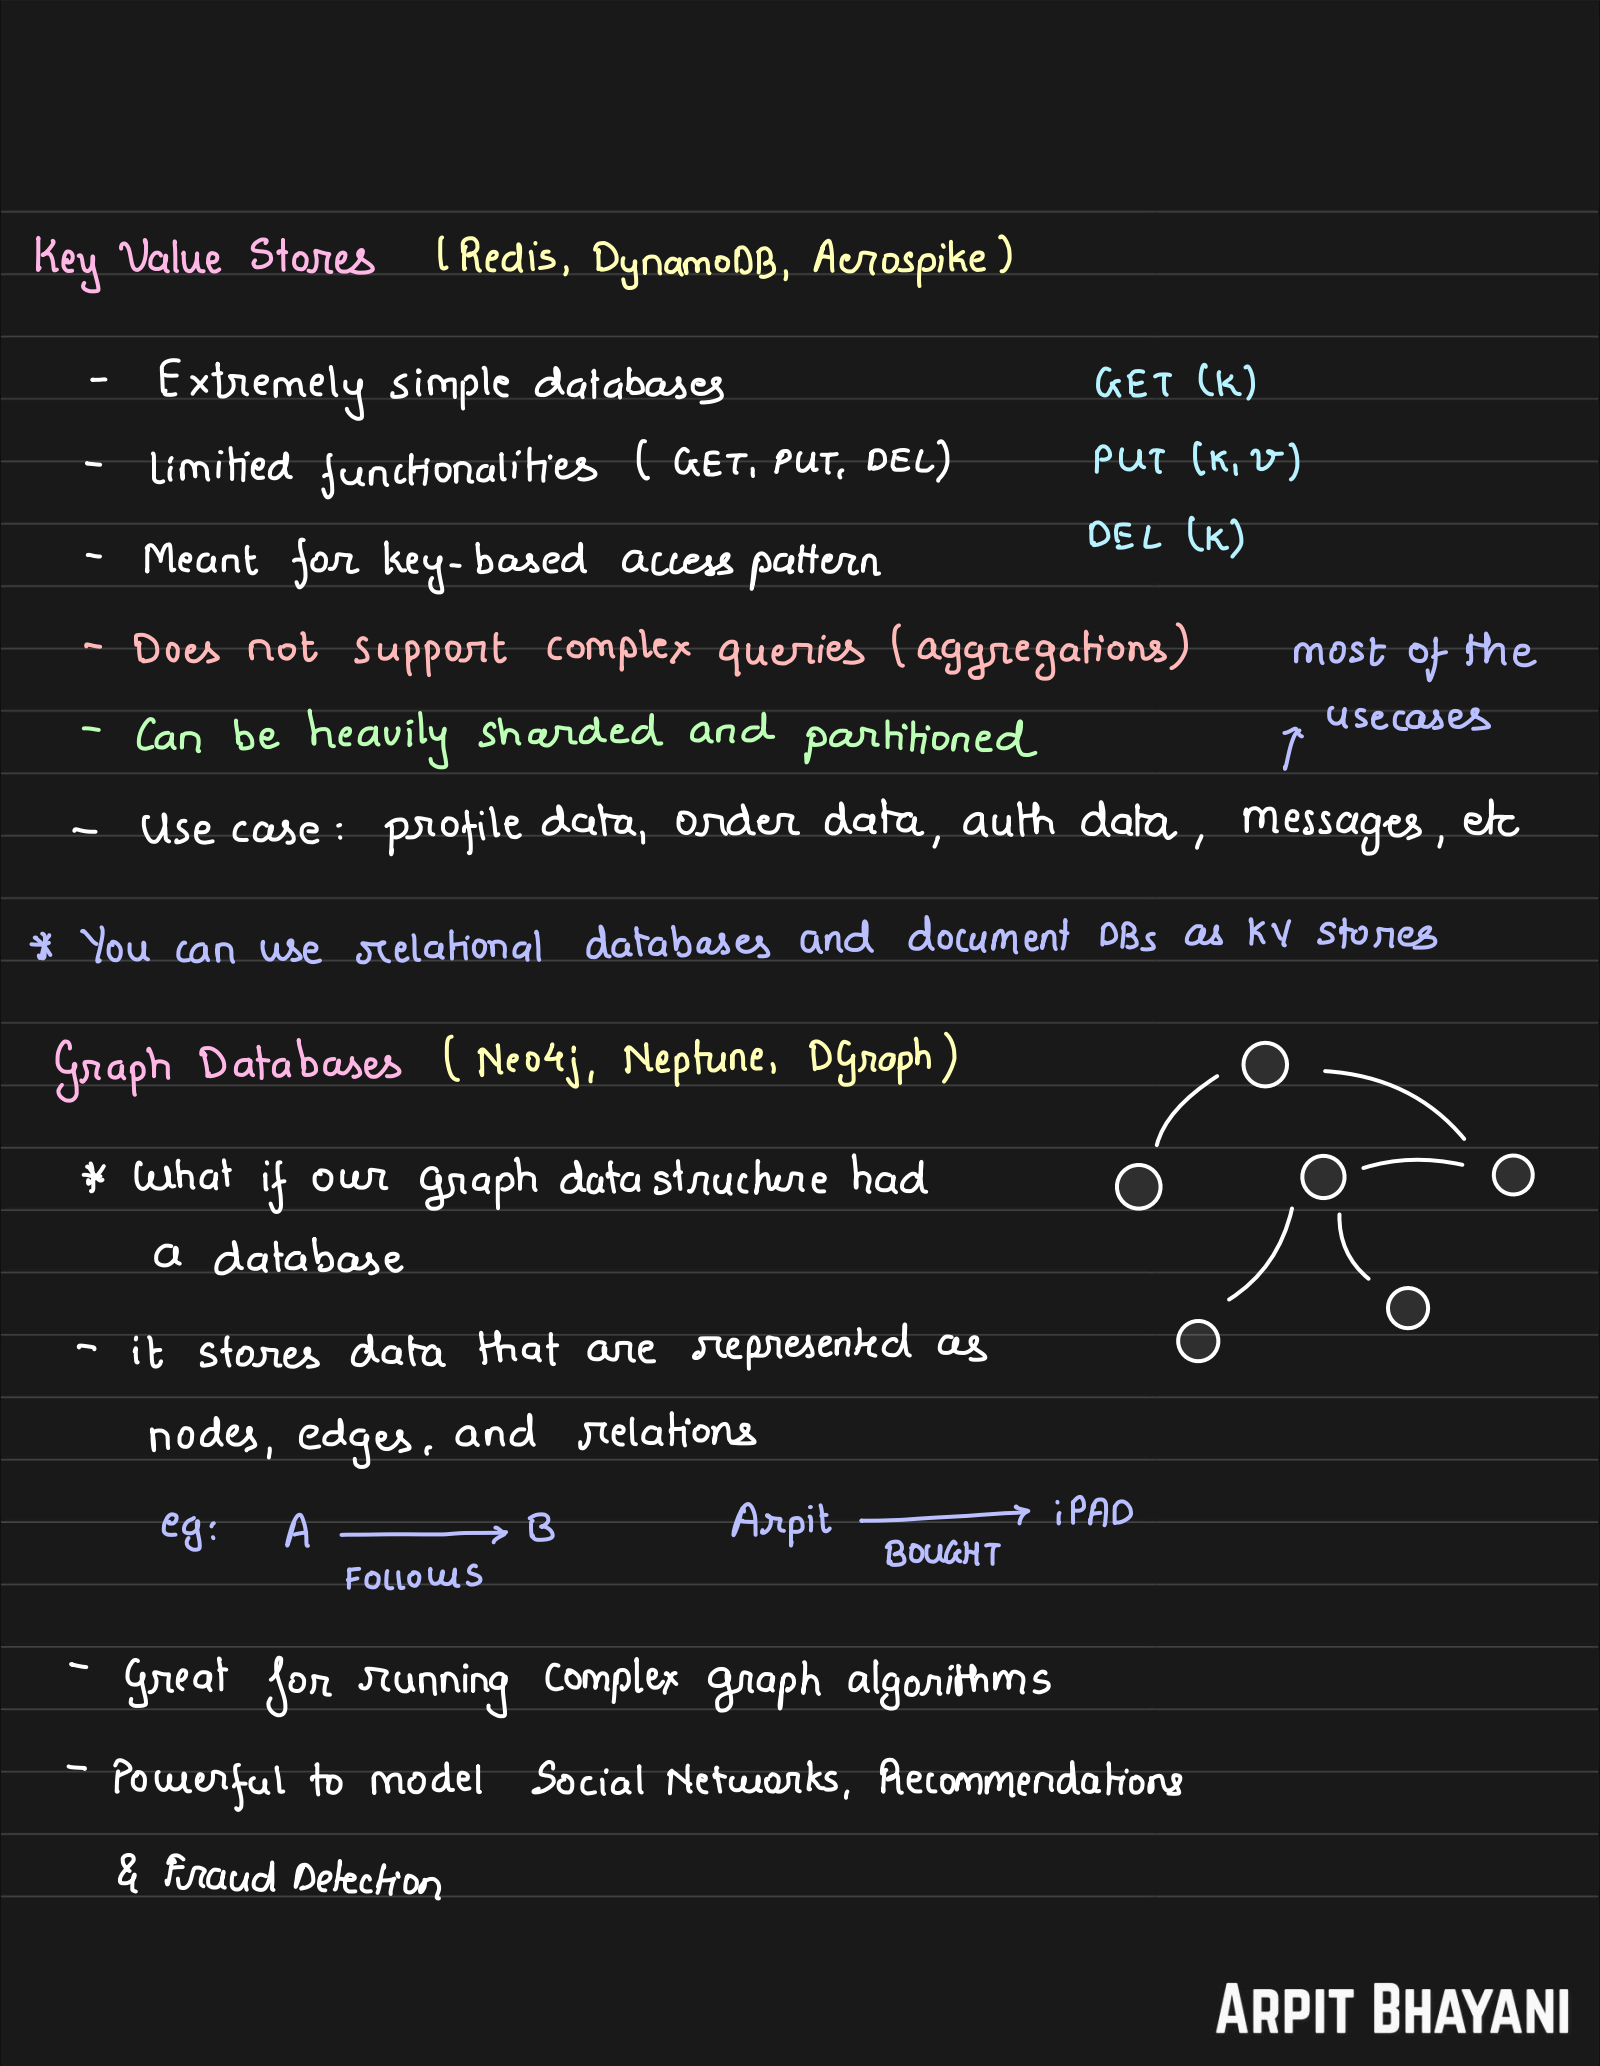 Key Value Stores (Redis, DynamoDB, Aerospike)
- Extremely simple databases GET (K)
- limitied functionalities (GET, PUT, DEL) PUT (K, V)
- Meant for key-based access pattern DEL (K)
- Does not support complex queries (aggregations) most of the
- Can be heavily sharded and partitioned ↑ usecases
- Use case: profile data, order data, auth data, messages, etc
* You can use relational databases and document DBs as KV stores
Graph Databases (Neo4j, Neptune, DGraph)
* What if our graph data structure had
a database
- it stores data that are represented as
nodes, edges, and relations
eg: A → B Arpit → iPAD
FOLLOWS BOUGHT
- Great for running complex graph algorithms
- Powerful to model Social Networks, Recommendations
& Fraud Detection
ARPIT BHAYANI